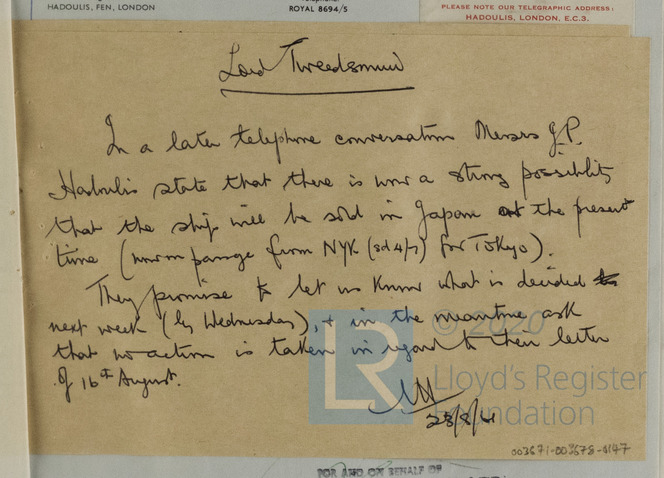 HADOULIS, FEN, LONDON
ROYAL 8694/5
PLEASE NOTE OUR TELEGRAPHIC ADDRESS:
HADOULIS, LONDON, E.C.3.
Lord Tweedsmuir
In a later telephone conversation Messrs J.P.
Hadoulis state that there is now a strong possibility
that the ship will be sold in Japan at the present
time (now on passage from NYK (sd 4/7) for Tokyo).
They promise to let us know what is decided
next week (by Wednesday), & in the meantime ask
that no action is taken in regard to their letter
of 16th August.
© 2020
LR
Lloyd's Register
Foundation
003671-003678-0147
FOR AND ON BEHALF OF